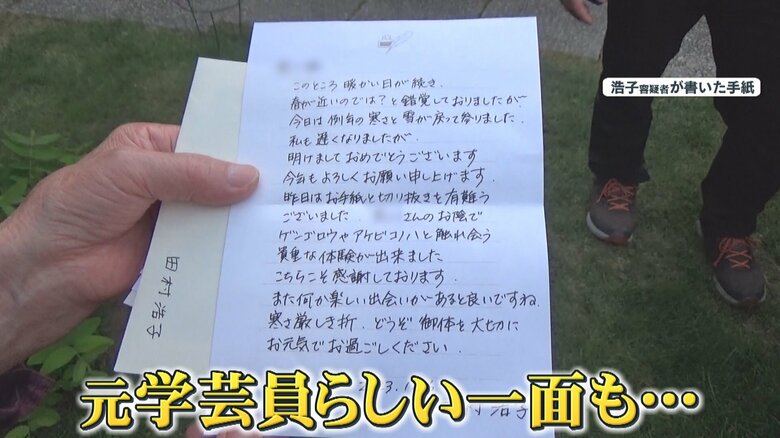 浩子容疑者が書いた手紙
このところ暖かい日が続き、
春が近いのでは？と錯覚しておりましたが、
今日は例年の寒さと雪が戻って参りました。
私も遅くなりましたが、
明けましておめでとうございます
今年もよろしくお願い申し上げます。
昨日はお手紙と切り抜きを有難う
ございました。 さんのお陰で
ゲンゴロウやアケビコノハと触れ合う
貴重な体験が出来ました
こちらこそ感謝しております。
また何か楽しい出会いがあると良いですね。
寒さ厳しき折、どうぞ御体を大切に
お元気でお過ごしください。
田村浩子
元学芸員らしい一面も…